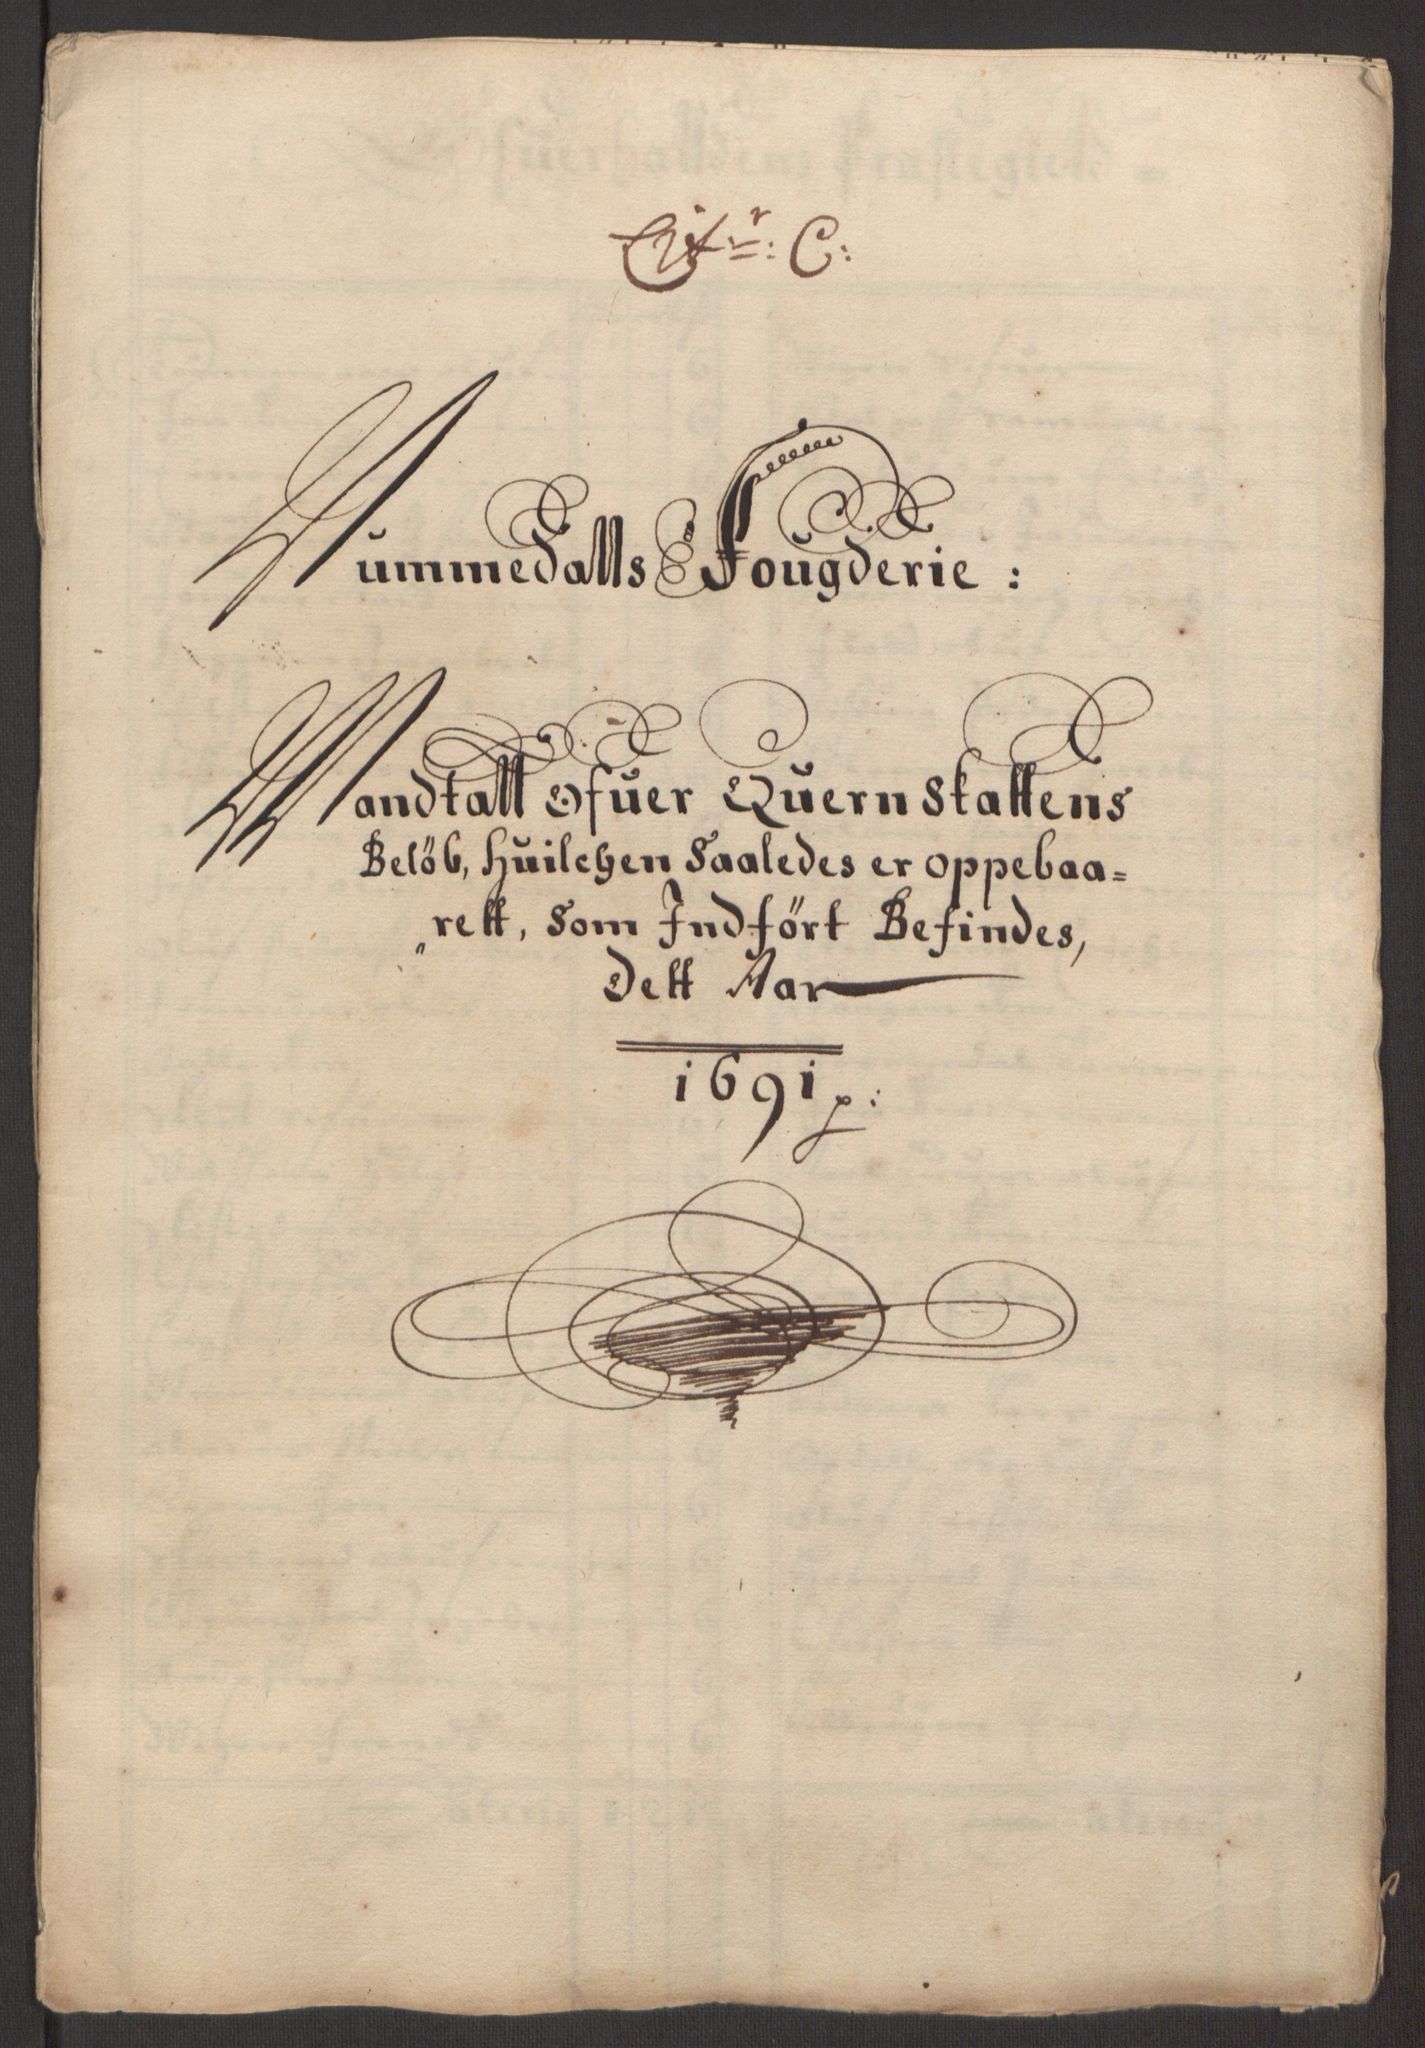 Litr: C:
Nummedalls Fougderie:
Mandtall Ofuer Quernskattens
Belöb, huilchen Saaledes er oppebaa=
"rett, Som Indfört Befindes,
Dett Aar
1691